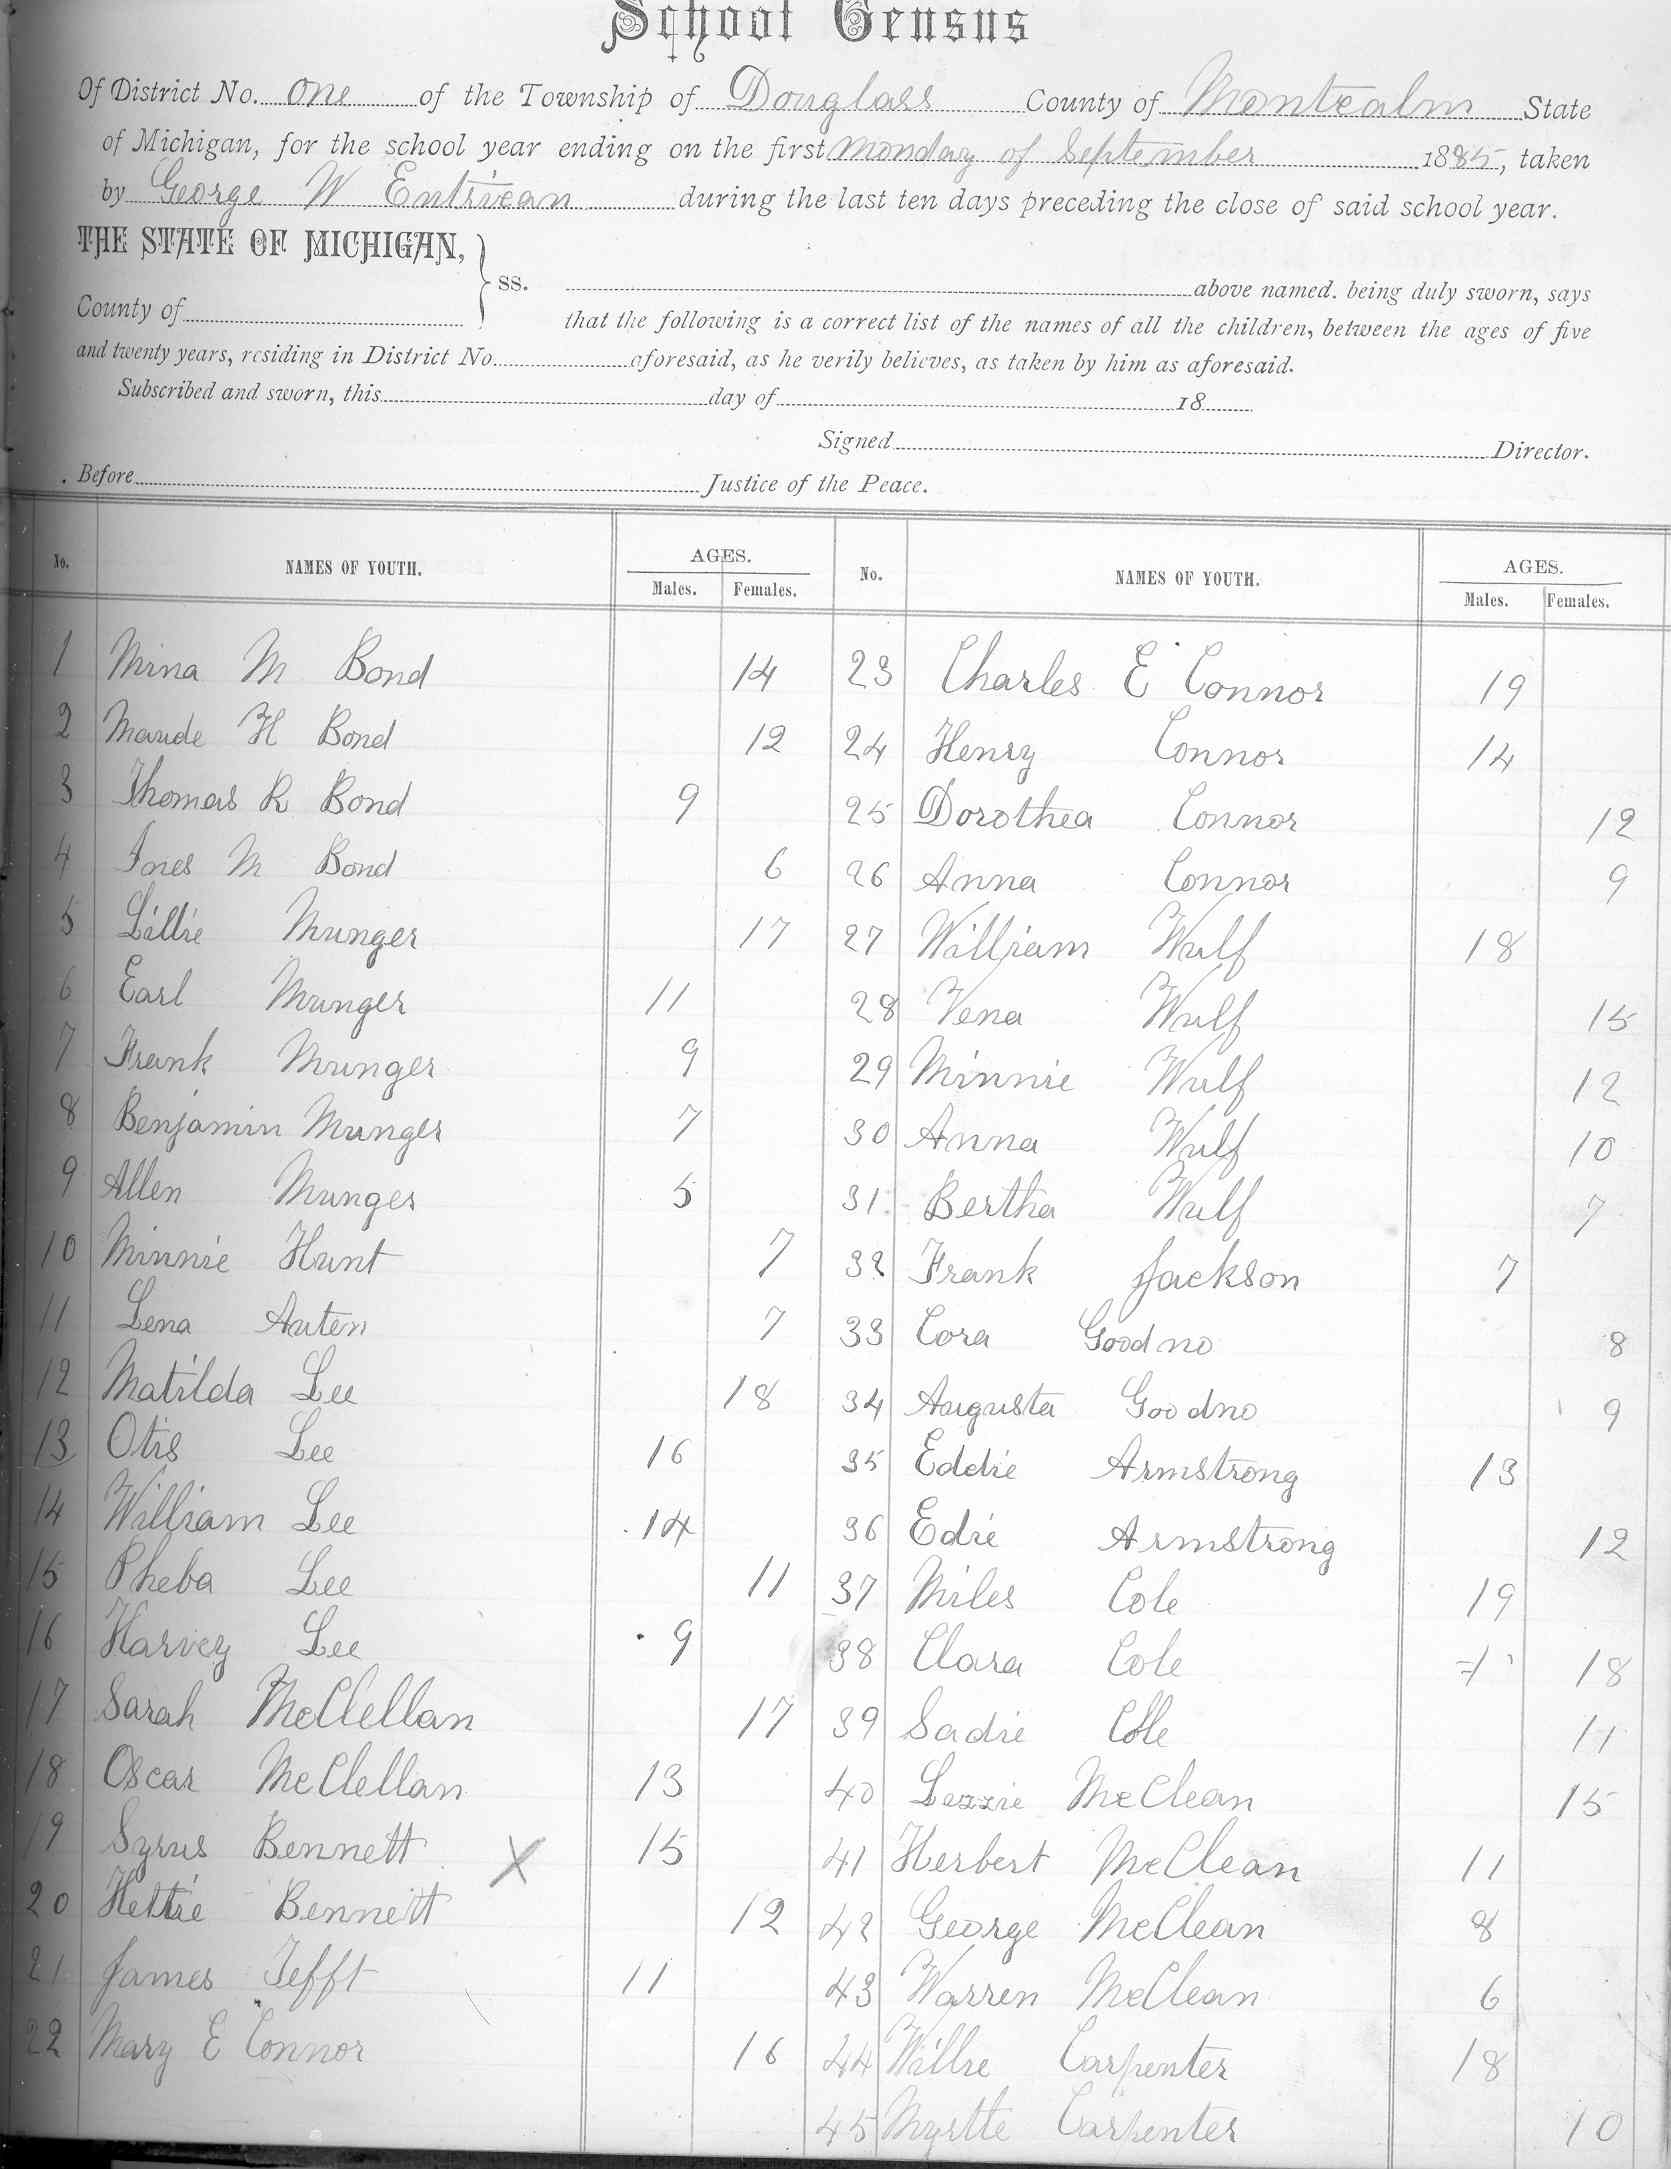 School Census
Of District No. One of the Township of Douglass County of Montcalm State
of Michigan, for the school year ending on the first Monday of September 1885, taken
by George W Entrican during the last ten days preceding the close of said school year.
THE STATE OF MICHIGAN, } ss.
above named. being duly sworn, says
County of
that the following is a correct list of the names of all the children, between the ages of five
and twenty years, residing in District No. aforesaid, as he verily believes, as taken by him as aforesaid.
Subscribed and sworn, this day of 18
Signed Director.
Before Justice of the Peace.
No. NAMES OF YOUTH. AGES. Males. Females.
1 Mina M Bond 14
2 Maude H Bond 12
3 Thomas R Bond 9
4 Ines M Bond 6
5 Lillie Munger 17
6 Earl Munger 11
7 Frank Munger 9
8 Benjamin Munger 7
9 Allen Munger 5
10 Minnie Hunt 7
11 Lena Auten 7
12 Matilda Lee 18
13 Otis Lee 16
14 William Lee 14
15 Pheba Lee 11
16 Harvey Lee 9
17 Sarah McClellan 17
18 Oscar McClellan 13
19 Syrus Bennett X 15
20 Hettie Bennett 12
21 James Tefft 11
22 Mary E Connor 16
No. NAMES OF YOUTH. AGES. Males. Females.
23 Charles E Connor 19
24 Henry Connor 14
25 Dorothea Connor 12
26 Anna Connor 9
27 William Wulf 18
28 Vena Wulf 15
29 Minnie Wulf 12
30 Anna Wulf 10
31 Bertha Wulf 7
32 Frank Jackson 7
33 Cora Goodno 8
34 Augusta Goodno 9
35 Eddie Armstrong 13
36 Edie Armstrong 12
37 Miles Cole 19
38 Clara Cole 18
39 Sadie Cole 11
40 Lizzie McClean 15
41 Herbert McClean 11
42 George McClean 8
43 Warren McClean 6
44 Willie Carpenter 18
45 Myrtle Carpenter 10